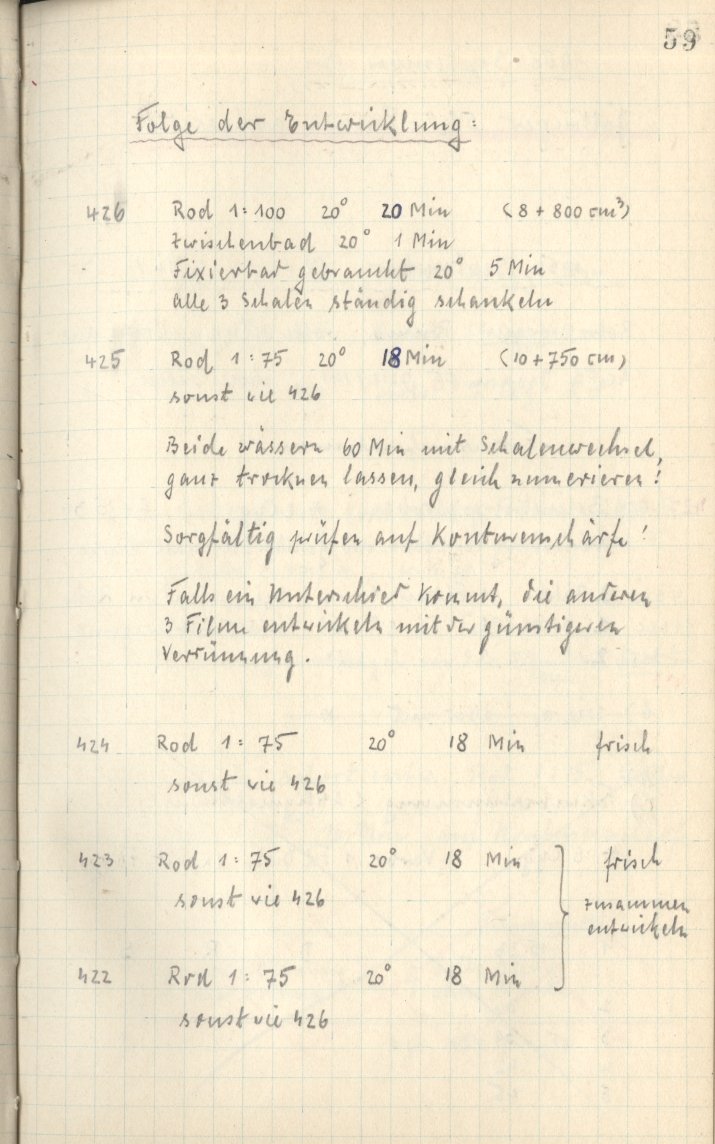 59
Folge der Entwicklung:
426 Rod 1:100 20° 20 Min (8 + 800 cm³)
Zwischenbad 20° 1 Min
Fixierbad gebraucht 20° 5 Min
alle 3 Schalen ständig schaukeln
425 Rod 1:75 20° 18 Min (10 + 750 cm)
sonst wie 426
Beide wässern 60 Min mit Schalenwechsel,
ganz trocknen lassen, gleich numerieren!
Sorgfältig prüfen auf Konturenschärfe!
Falls ein Unterschied kommt, die anderen
3 Filme entwickeln mit der günstigeren
Verdünnung.
424 Rod 1:75 20° 18 Min frisch
sonst wie 426
423 Rod 1:75 20° 18 Min frisch
sonst wie 426
zusammen
entwickeln
422 Rod 1:75 20° 18 Min
sonst wie 426